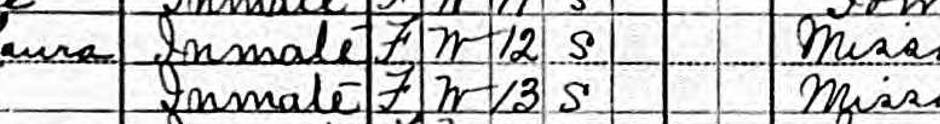 Inmate F W 11 S
aura Inmate F W 12 S Miss
Inmate F W 13 S Miss